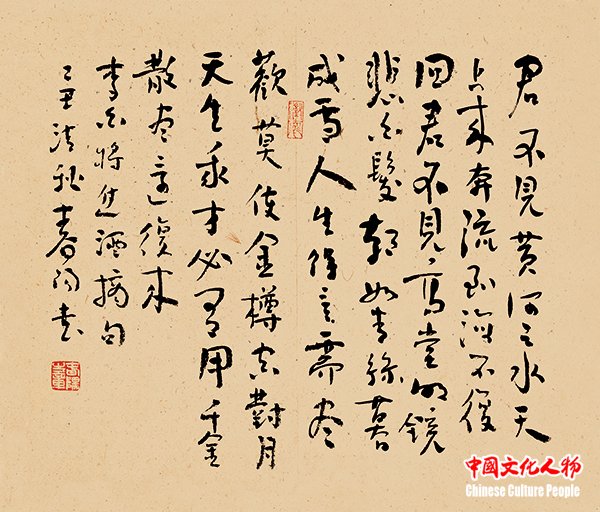 君不見黄河之水天
上来奔流到海不復
回君不見高堂明鏡
悲白髮朝如青絲暮
成雪人生得意需尽
歡莫使金樽空對月
天生我才必有用千金
散尽還復来
李白將進酒摘句
丑清秋春阳书
中国文化人物
Chinese Culture People